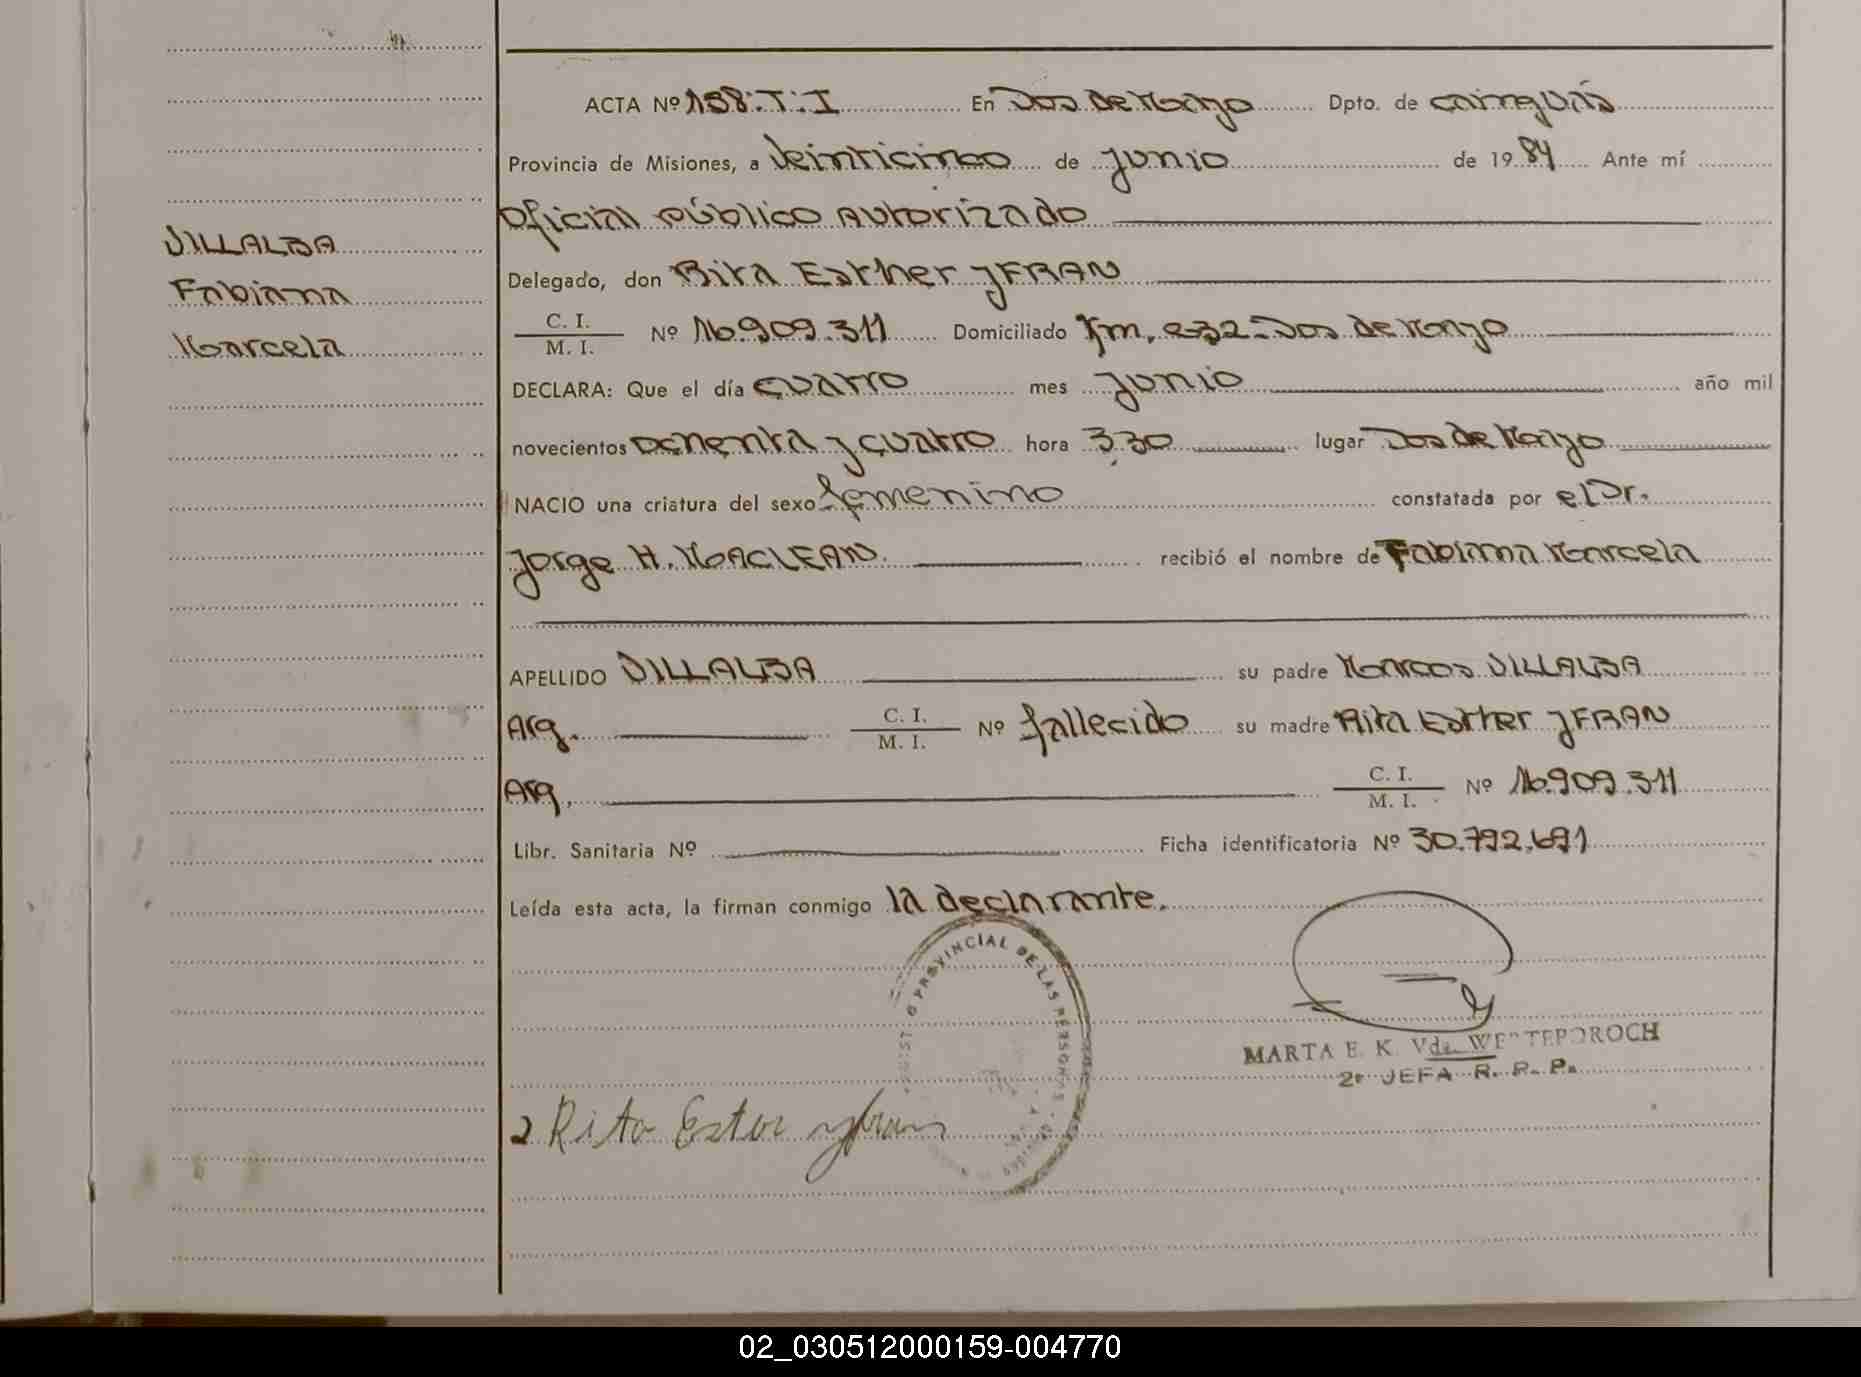 ACTA Nº 158:T:I En Dos de Mayo Dpto. de cainguás
Provincia de Misiones, a Veinticinco de junio de 19 84 Ante mí
Oficial público Autorizado
VILLALBA
Fabiana
Marcela
Delegado, don Rita Esther YFRAN
C. I.
M. I. Nº 16.909.311 Domiciliado Km. 232-Dos de Mayo
DECLARA: Que el día cuatro mes junio año mil
novecientos ochenta y cuatro hora 3.30 lugar Dos de Mayo
NACIO una criatura del sexo femenino constatada por el Dr.
Jorge H. MACLEAN. recibió el nombre de Fabiana Marcela
APELLIDO VILLALBA su padre Marcos VILLALBA
Arg. C. I. M. I. Nº fallecido su madre Rita Esther YFRAN
Arg. C. I. M. I. Nº 16.909.311
Libr. Sanitaria Nº Ficha identificatoria Nº 30.792.691
Leída esta acta, la firman conmigo la declarante.
PROVINCIAL DE LAS PERSONAS
MARTA E. K. Vda. WESTEPOROCH
2ª JEFA R. P. P.
Rita Ester yfran
02_030512000159-004770